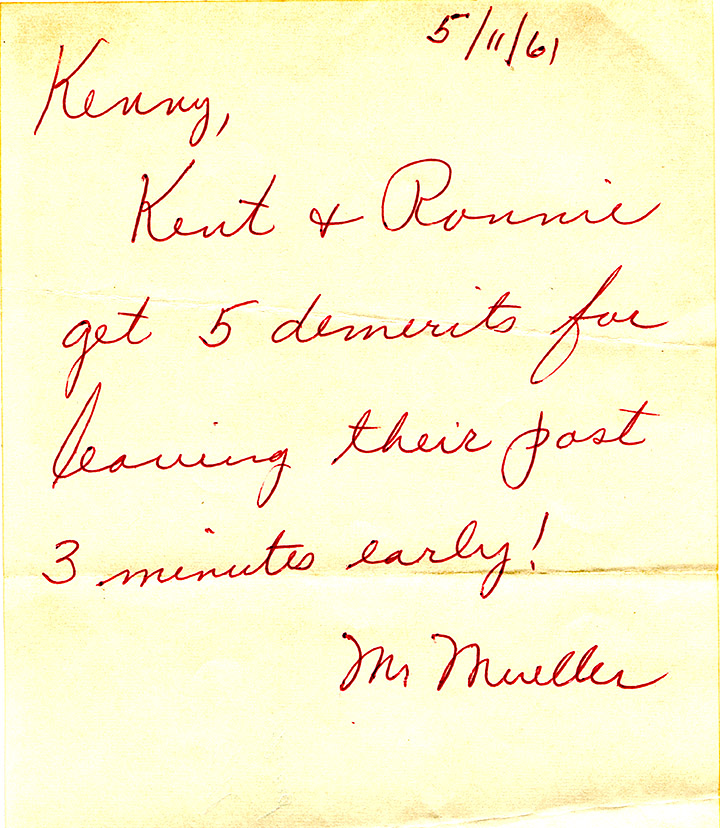 5/11/61
Kenny,
Kent & Ronnie
get 5 demerits for
leaving their post
3 minutes early!
Mr Mueller